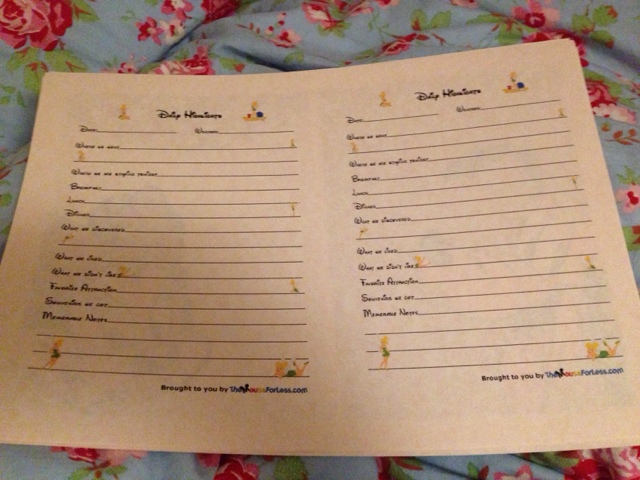 Daily Highlights
Date: Weather:
Where we went
Where we are staying tonight
Breakfast
Lunch
Dinner
What we discovered
What we liked
What we didn't like
Favorite Attraction
Souvenir we got
Memorable Notes
Brought to you by TheMouseForLess.com
Daily Highlights
Date: Weather:
Where we went
Where we are staying tonight
Breakfast
Lunch
Dinner
What we discovered
What we liked
What we didn't like
Favorite Attraction
Souvenir we got
Memorable Notes
Brought to you by TheMouseForLess.com